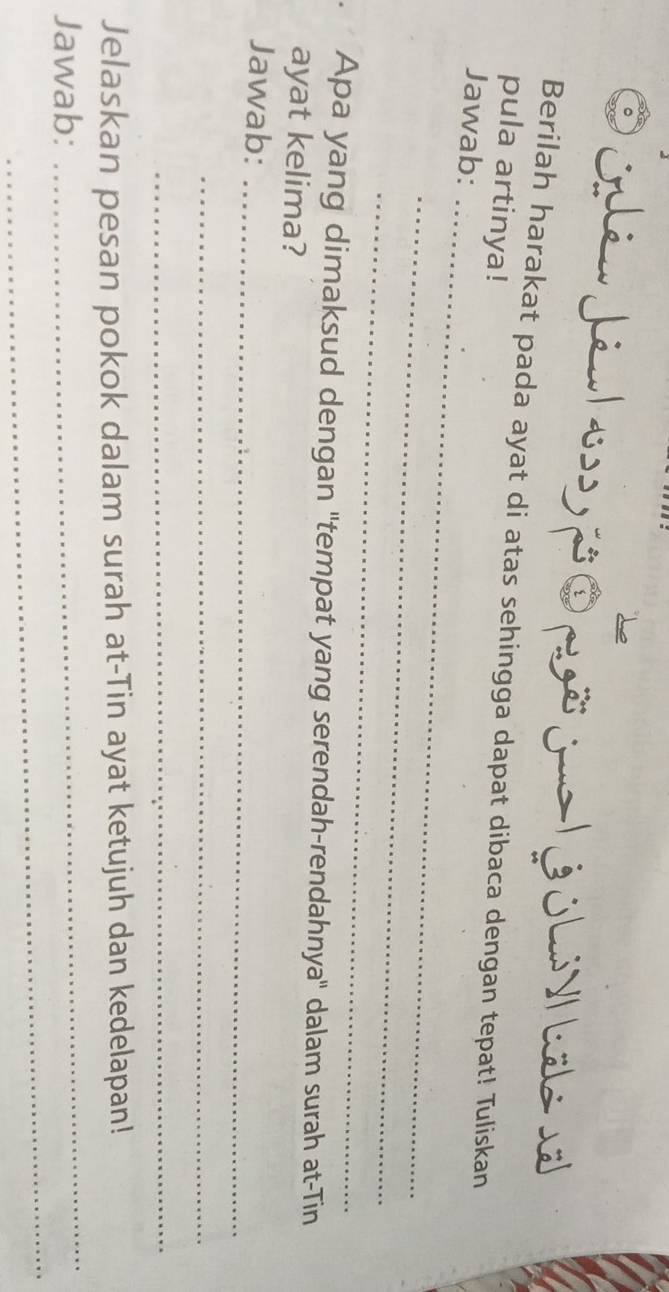 لقد خلقنا الانسان في احسن تقويم ۖ ٤ ثمّ رددنه اسفل سفلين ٥
Berilah harakat pada ayat di atas sehingga dapat dibaca dengan tepat! Tuliskan
pula artinya!
Jawab:
Apa yang dimaksud dengan "tempat yang serendah-rendahnya" dalam surah at-Tin
ayat kelima?
Jawab:
Jelaskan pesan pokok dalam surah at-Tin ayat ketujuh dan kedelapan!
Jawab: